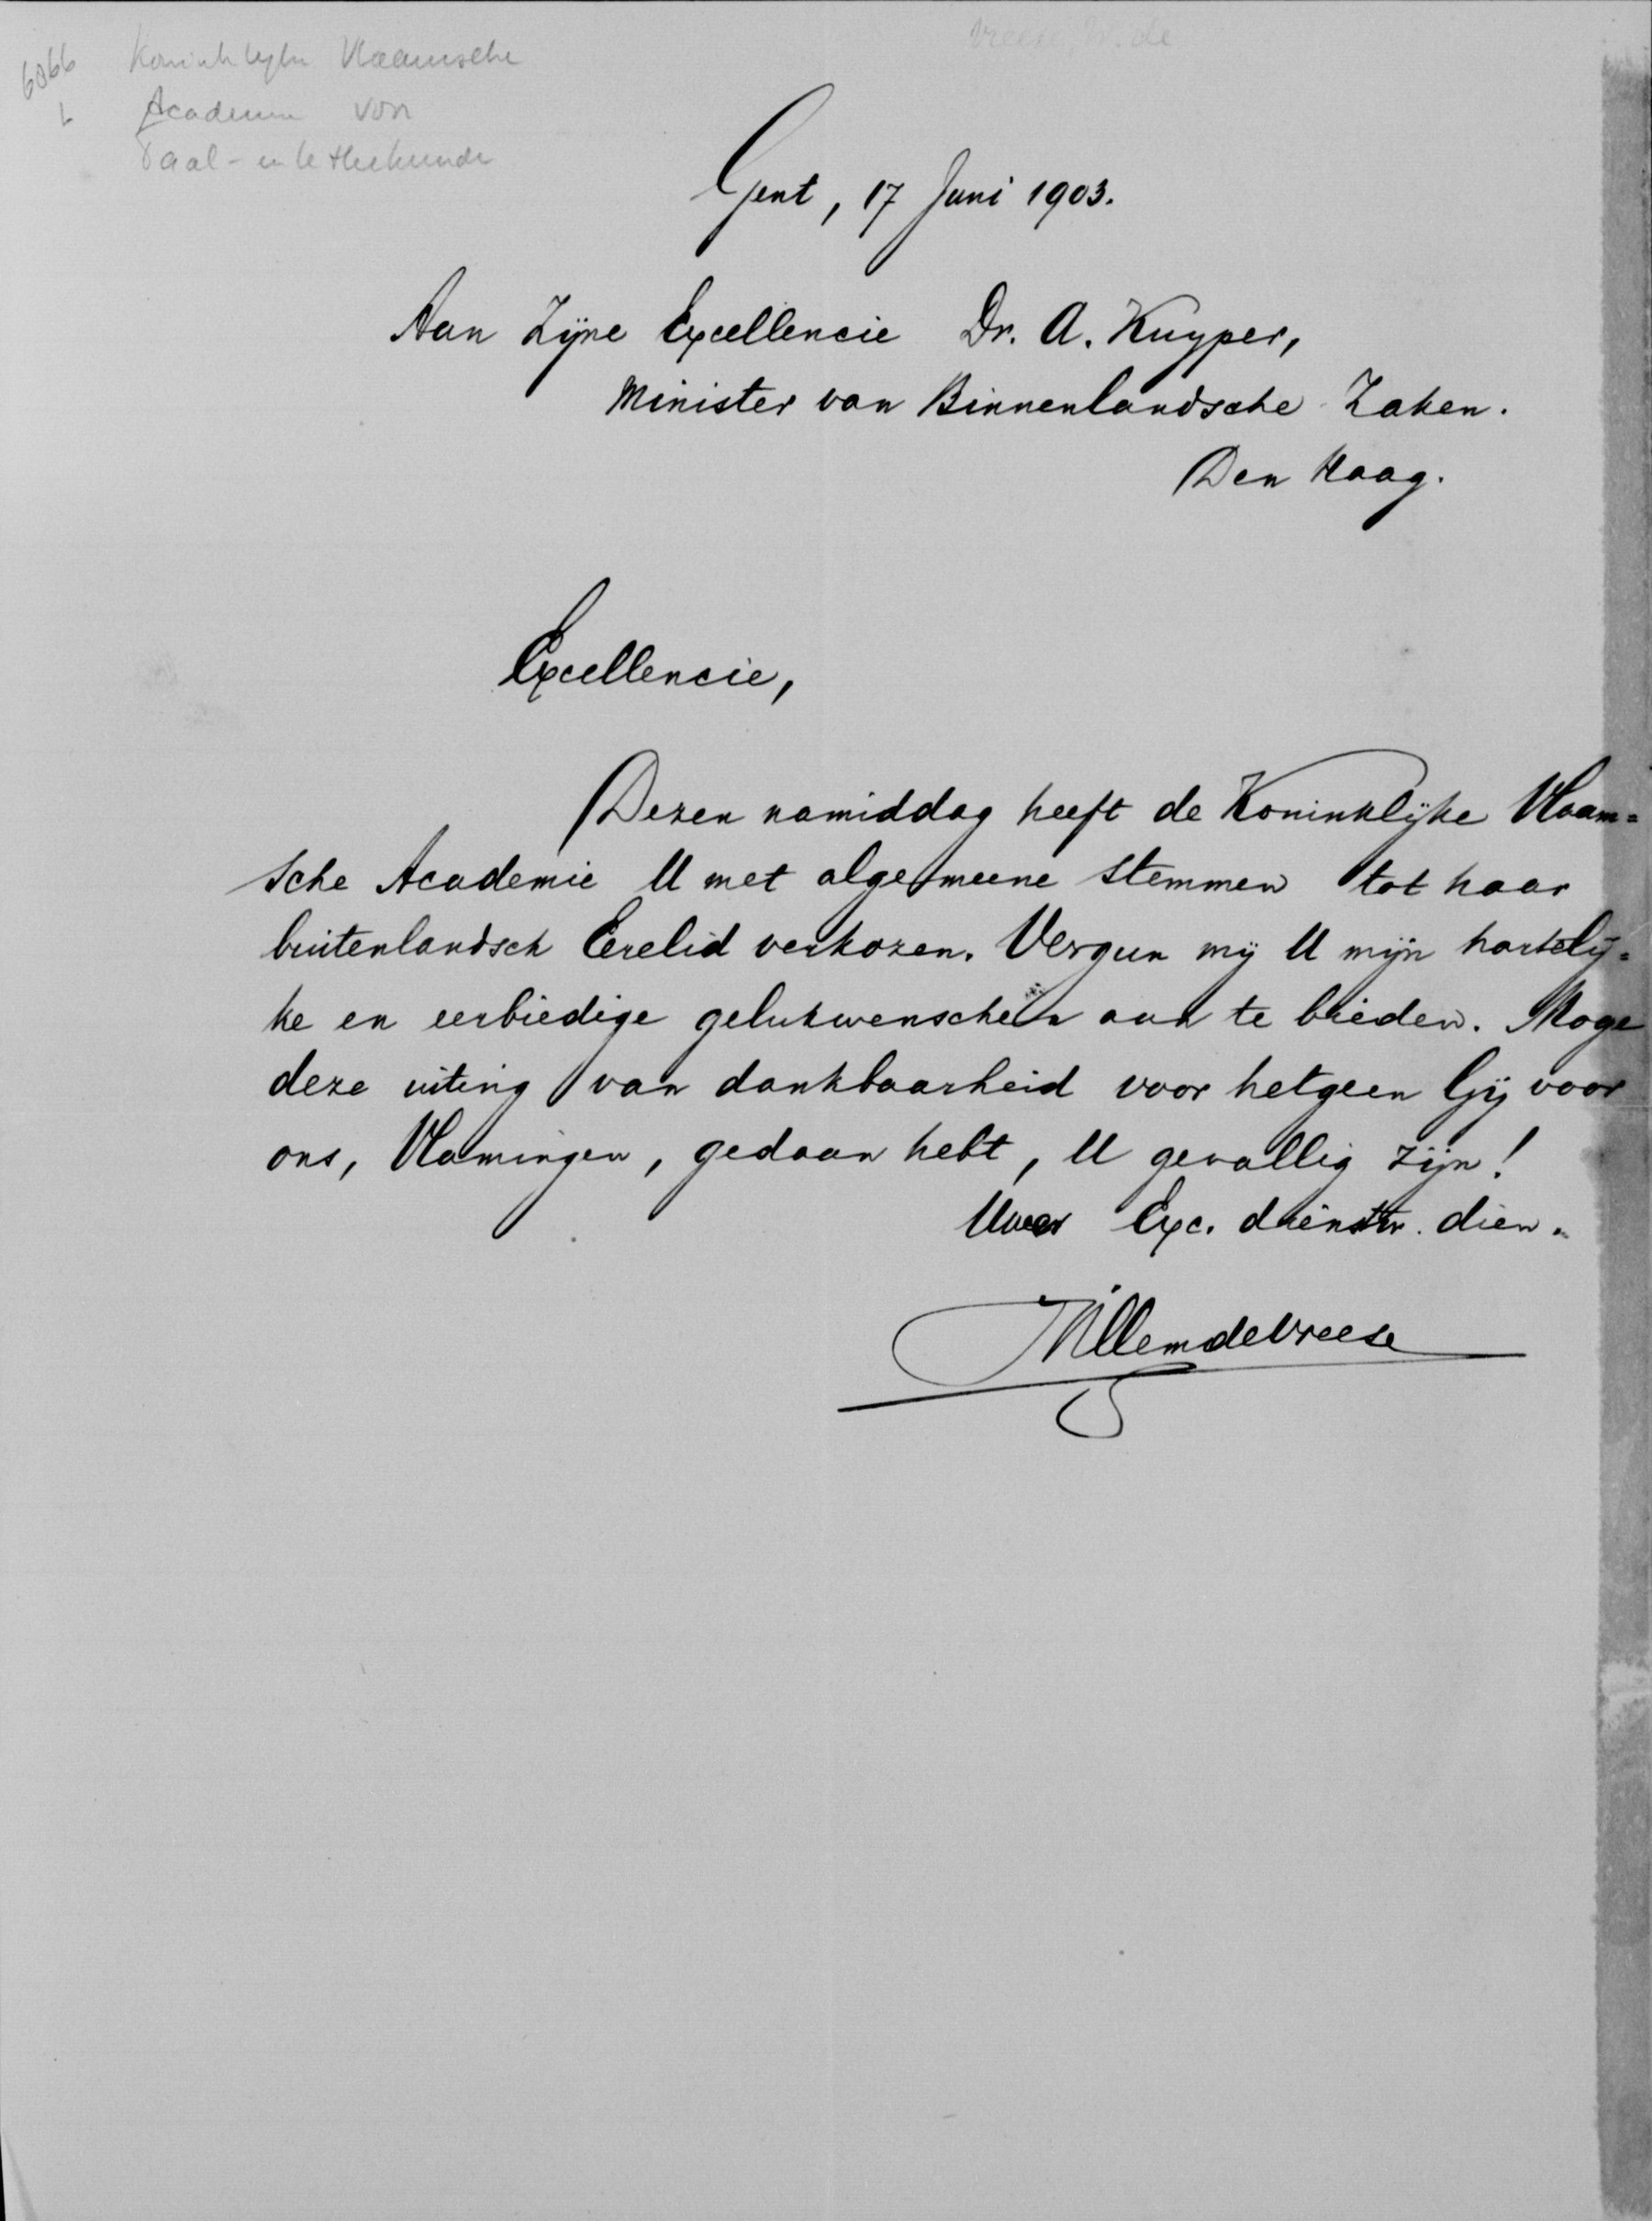 Vreese, W. de
6066 Koninklijke Vlaamsche
L Academie von
Taal- en letterkunde
Gent, 17 Juni 1903.
Aan Zijne Excellencie Dr. A. Kuyper,
Minister van Binnenlandsche Zaken.
Den Haag.
Excellencie,
Dezen namiddag heeft de Koninklijke Vlaam=
sche Academie U met algemeene stemmen tot haar
buitenlandsch Eerelid verkozen. Vergun mij U mijn hartelij=
ke en eerbiedige gelukwenschen aan te bieden. Moge
deze uiting van dankbaarheid voor hetgeen Gij voor
ons, Vlamingen, gedaan hebt, U gevallig zijn!
Uwer Exc. dienstw. dien.
Willem de Vreese